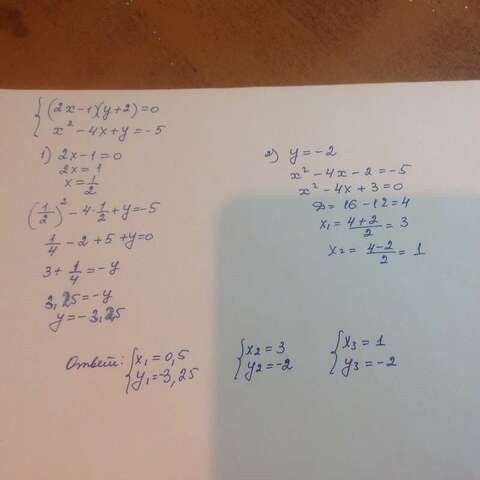 {(2x-1)(y+2)=0
x²-4x+y=-5
1) 2x-1=0
2x=1
x=1/2
(1/2)²-4·1/2+y=-5
1/4-2+5+y=0
3+1/4=-y
3,25=-y
y=-3,25
2) y=-2
x²-4x-2=-5
x²-4x+3=0
D=16-12=4
x₁=(4+2)/2=3
x₂=(4-2)/2=1
Ответ: {x₁=0,5 {x₂=3 {x₃=1
y₁=-3,25 y₂=-2 y₃=-2